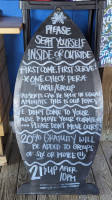 PLEASE
SEAT YOURSELF
INSIDE OR OUTSIDE
FIRST COME, FIRST SERVE
* ONE CHECK PER
TABLE/GROUP
PAYMENTS CAN BE
AMOUNTS. THIS IS OUR POLICY
WE DON'T COME TO YOUR
HOUSE & MOVE YOUR FURNITURE
PLEASE DON'T MOVE OURS
20% GRATUITY WILL
BE ADDED TO GROUPS
OF SIX OR MORE
21+ UP AFTER
10PM